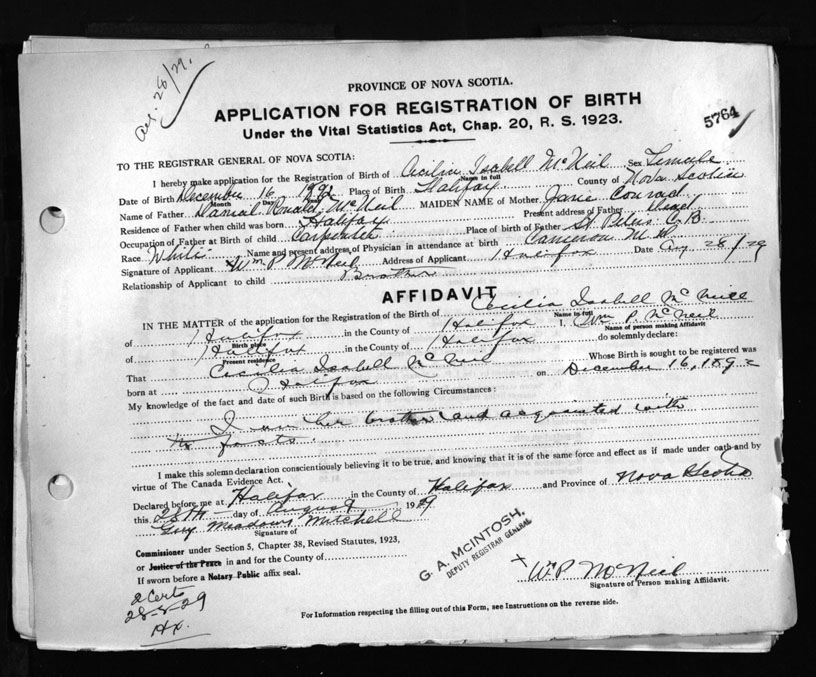 Aug. 28/29.
PROVINCE OF NOVA SCOTIA.
APPLICATION FOR REGISTRATION OF BIRTH
Under the Vital Statistics Act, Chap. 20, R. S. 1923.
5764
TO THE REGISTRAR GENERAL OF NOVA SCOTIA:
I hereby make application for the Registration of Birth of Cecilia Isabell McNeil Sex Female
Name in full
Date of Birth December 16 1892 Place of Birth Halifax County of Nova Scotia
Month Day
Name of Father Daniel Ronald McNeil MAIDEN NAME of Mother Jane Conrad
Residence of Father when child was born Halifax Present address of Father Dead
Occupation of Father at Birth of child Carpenter Place of birth of Father St Peters C.B.
Race White Name and present address of Physician in attendance at birth Cameron M.D.
Signature of Applicant Wm P McNeil Address of Applicant Halifax Date Aug 28/29
Relationship of Applicant to child Brother
AFFIDAVIT
IN THE MATTER of the application for the Registration of the Birth of Cecilia Isabell McNeill
Name in full
of Halifax in the County of Halifax I, Wm P. McNeil
Birth place Name of person making Affidavit
of Halifax in the County of Halifax do solemnly declare:
Present residence
That Cecilia Isabell McNeil Whose Birth is sought to be registered was
born at Halifax on December 16, 1892
My knowledge of the fact and date of such Birth is based on the following Circumstances:
I am her brother and acquainted with
the facts.
I make this solemn declaration conscientiously believing it to be true, and knowing that it is of the same force and effect as if made under oath and by
virtue of The Canada Evidence Act.
Declared before me at Halifax in the County of Halifax and Province of Nova Scotia
this 28th day of August 1929
Guy Meadows Mitchell
Signature of
Commissioner under Section 5, Chapter 38, Revised Statutes, 1923,
or Justice of the Peace in and for the County of
If sworn before a Notary Public affix seal.
G. A. McINTOSH,
DEPUTY REGISTRAR GENERAL
Wm P McNeil
Signature of Person making Affidavit.
2 Certs
28-8-29
Hx.
For Information respecting the filling out of this Form, see Instructions on the reverse side.